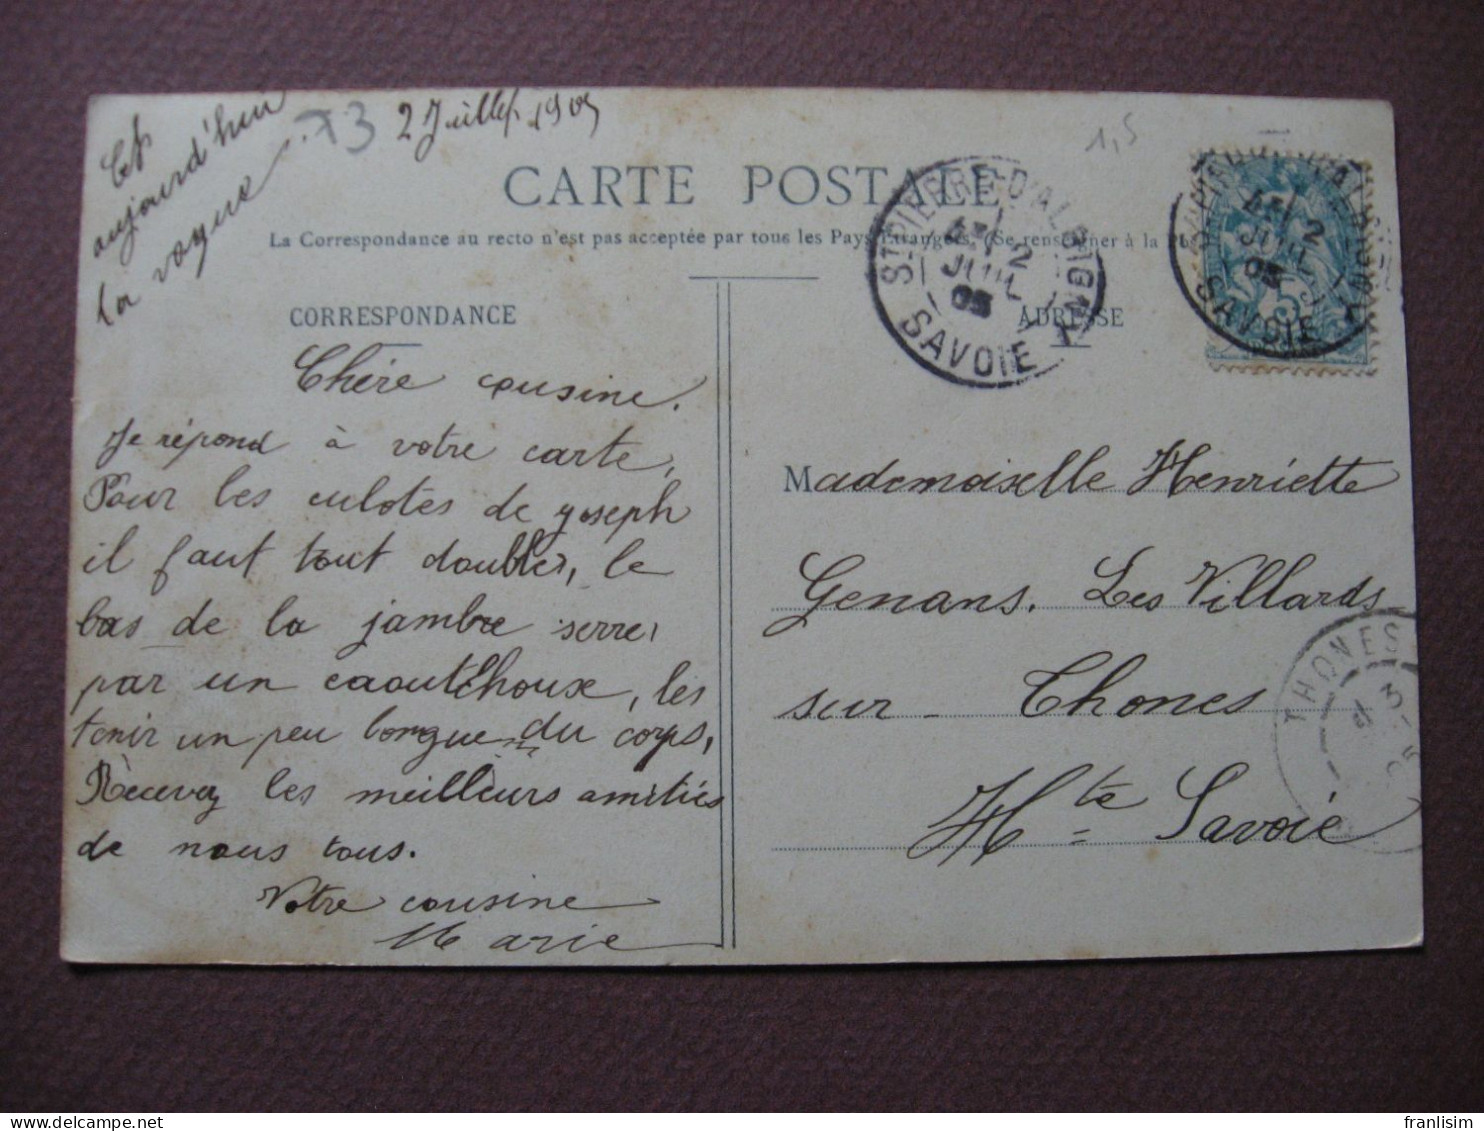 aujourd'hui
la vogue
73
2 Juillet 1905
1,5
CARTE POSTALE
La Correspondance au recto n'est pas acceptée par tous les Pays Etrangers. (Se renseigner à la
CORRESPONDANCE
ADRESSE
ST PIERRE-D'ALBIGNY
2
JUIL
05
SAVOIE
2
JUIL
05
SAVOIE
5
Chère cousine.
Je répond à votre carte,
Pour les culotes de yoseph
il faut tout doubler, le
bas de la jambre serrer
par un caoutchoux, les
tenir un peu longue du corps,
Recevez les meilleurs amitiés
de nous tous.
Votre cousine
Marie
Mademoiselle Henriette
Genans. Les Villards
sur Thones
Hte Savoie
THONES
franlisim